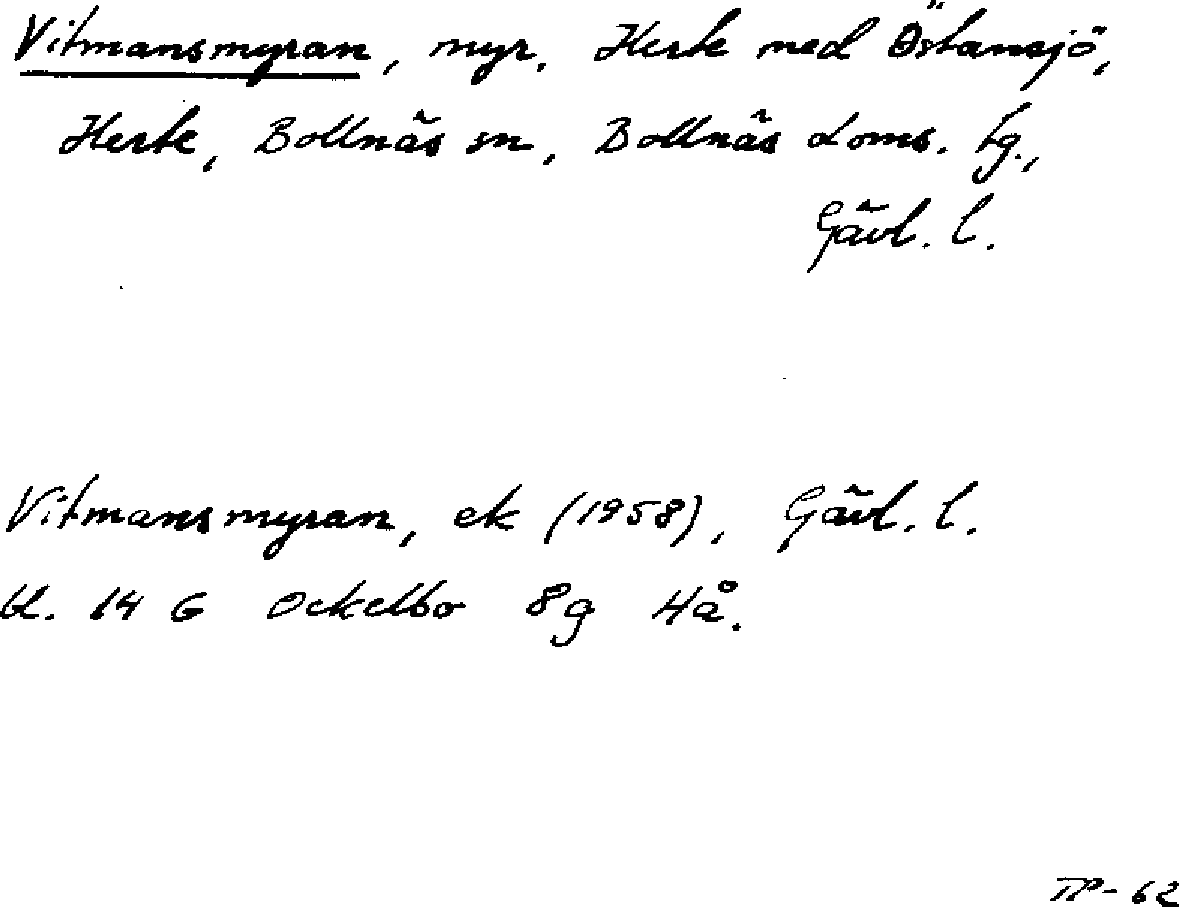 Vitmansmyran, myr, Herte med Östansjö,
Herte, Bollnäs sn, Bollnäs doms. tg.,
Gävl. l.
Vitmansmyran, ek (1958), Gävl. l.
bl. 14 G Ockelbo 8g Hå.
TP-62